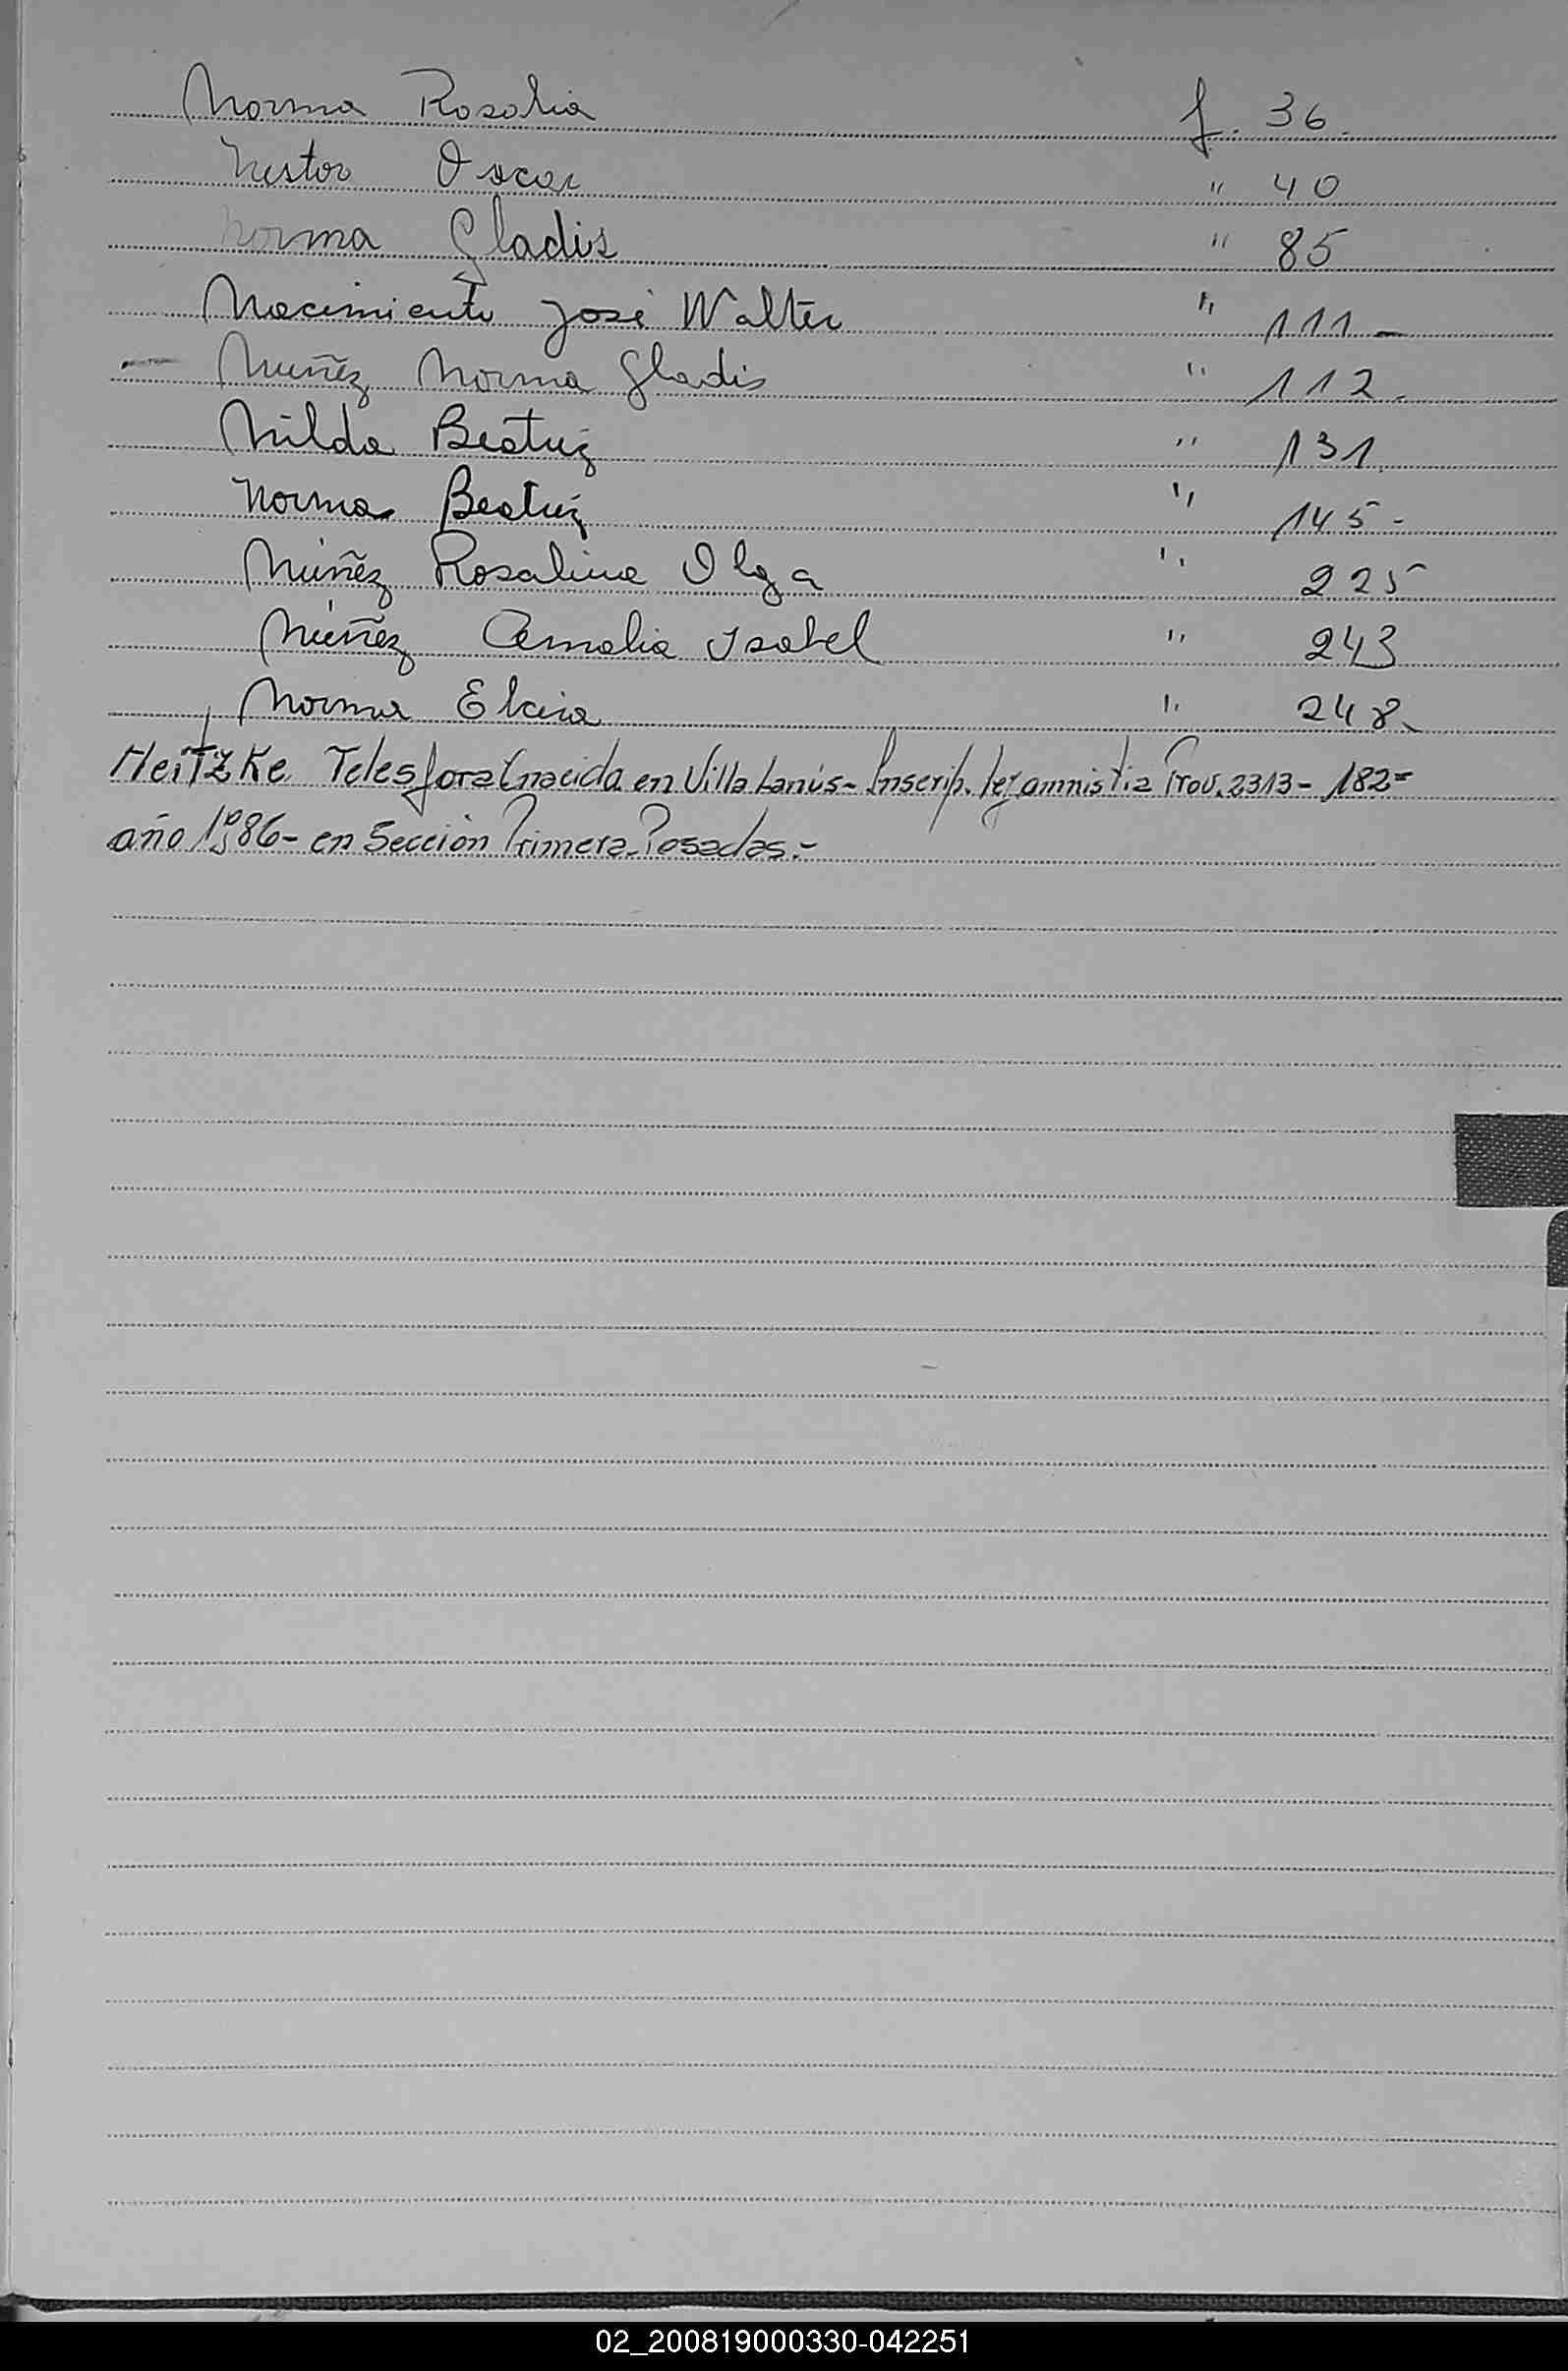 Norma Rosalia f. 36.
Nestor Oscar " 40
Norma Gladis " 85
Nacimiento José Walter " 111 -
- Nuñez Norma Gladis " 112.
Nilda Beatriz " 131.
Norma Beatriz " 145 -
Núñez Rosalina Olga " 225
Núñez Amalia Isabel " 243
Norma Elcira " 248.
Neitzke Telesfora (nacida en Villa Lanús - Inscrip. ley amnistia Prov. 2313 - 182 =
año 1986 - en Sección Primera Posadas. -
02_200819000330-042251